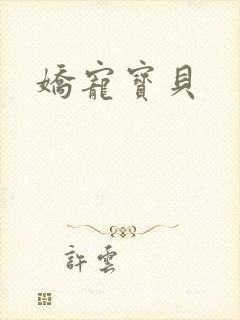 嬌寵寶貝
許雲